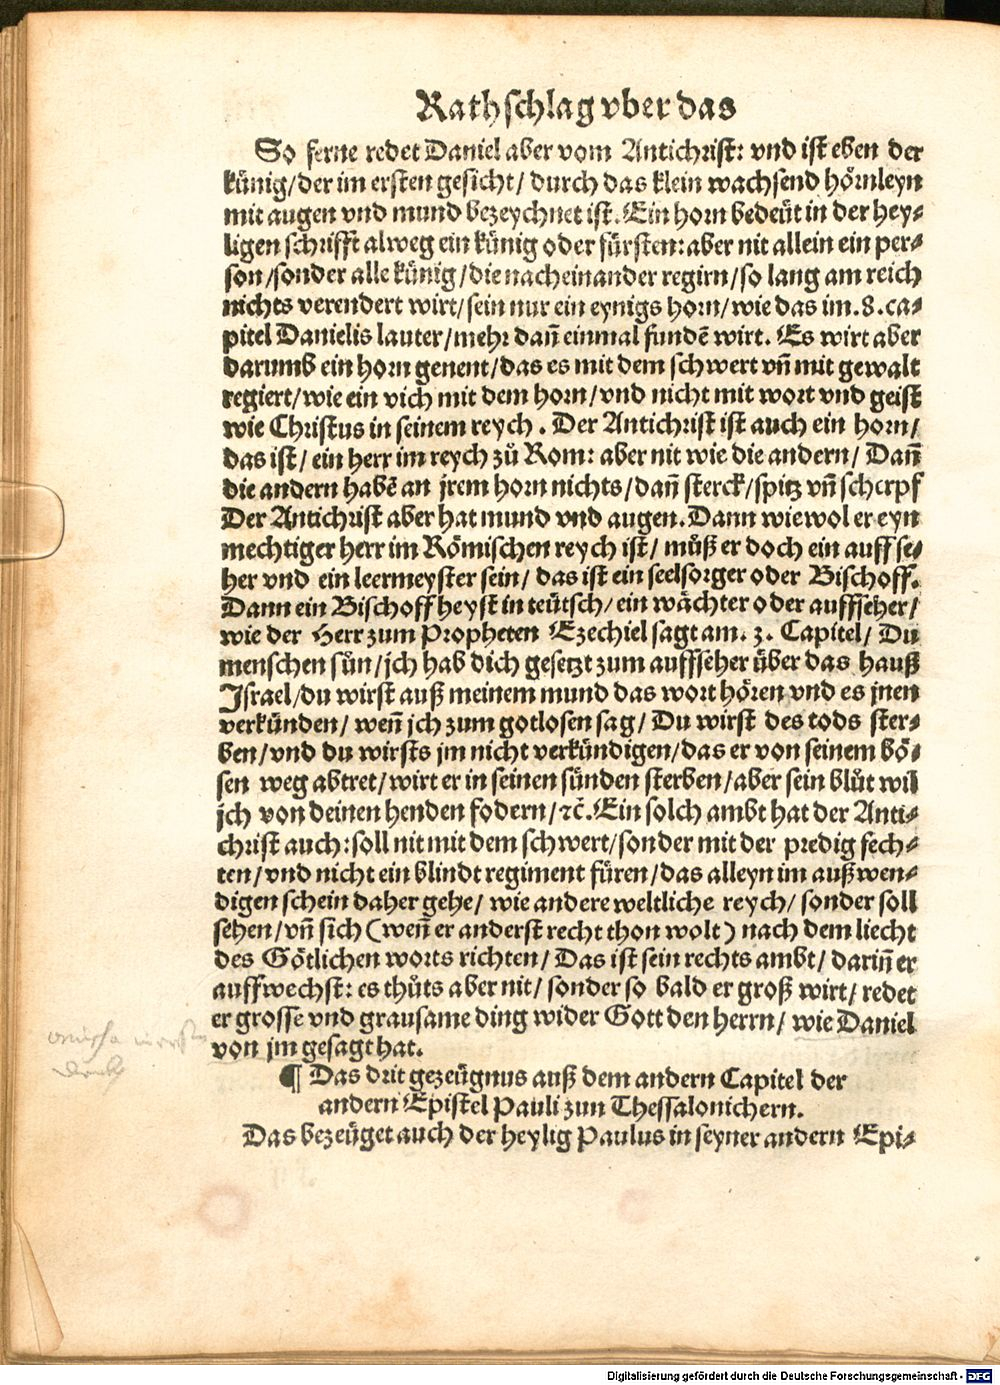 Rathschlag vber das
So ferne redet Daniel aber vom Antichrist: vnd ist eben der
künig/der im ersten gesicht/ durch das klein wachsend hörnleyn
mit augen vnd mund bezeychnet ist. Ein horn bedeüt in der hey⸗
ligen schrifft alweg ein künig oder fürsten: aber nit allein ein per⸗
son/sonder alle künig/die nacheinander regirn/so lang am reich
nichts verendert wirt/sein nur ein eynigs horn/wie das im.8.ca⸗
pitel Danielis lauter/mehr dañ einmal fundē wirt. Es wirt aber
darumb ein horn genent/das es mit dem schwert vñ mit gewalt
regiert/wie ein vich mit dem horn/vnd nicht mit wort vnd geist
wie Christus in seinem reych. Der Antichrist ist auch ein horn/
das ist/ ein herr im reych zů Rom: aber nit wie die andern/ Dañ
die andern habē an jrem horn nichts/dañ sterck/spitz vñ scherpf
Der Antichrist aber hat mund vnd augen. Dann wiewol er eyn
mechtiger herr im Römischen reych ist/ můß er doch ein auffse⸗
her vnd ein leermeyster sein/ das ist ein seelsorger oder Bischoff.
Dann ein Bischoff heyst in teütsch/ein wächter oder auffseher/
wie der Herr zum Propheten Ezechiel sagt am. 3. Capitel/ Du
menschen sün/jch hab dich gesetzt zum auffseher über das hauß
Jsrael/du wirst auß meinem mund das wort hören vnd es jnen
verkünden/ weñ jch zum gotlosen sag/ Du wirst des tods ster⸗
ben/vnd du wirsts jm nicht verkündigen/das er von seinem bö⸗
sen weg abtret/wirt er in seinen sünden sterben/aber sein blůt wil
jch von deinen henden fodern/ꝛc̄. Ein solch ambt hat der Anti⸗
christ auch: soll nit mit dem schwert/sonder mit der predig fech⸗
ten/vnd nicht ein blindt regiment füren/das alleyn im außwen⸗
digen schein daher gehe/ wie andere weltliche reych/ sonder soll
sehen/vñ sich (weñ er anderst recht thon wolt) nach dem liecht
des Götlichen worts richten/ Das ist sein rechts ambt/ dariñ er
auffwechst: es thůts aber nit/ sonder so bald er groß wirt/ redet
er grosse vnd grausame ding wider Gott den herrn/ wie Daniel
von jm gesagt hat.
¶ Das drit gezeügnus auß dem andern Capitel der
andern Epistel Pauli zun Thessalonichern.
Das bezeüget auch der heylig Paulus in seyner andern Epi⸗
Digitalisierung gefördert durch die Deutsche Forschungsgemeinschaft - DFG